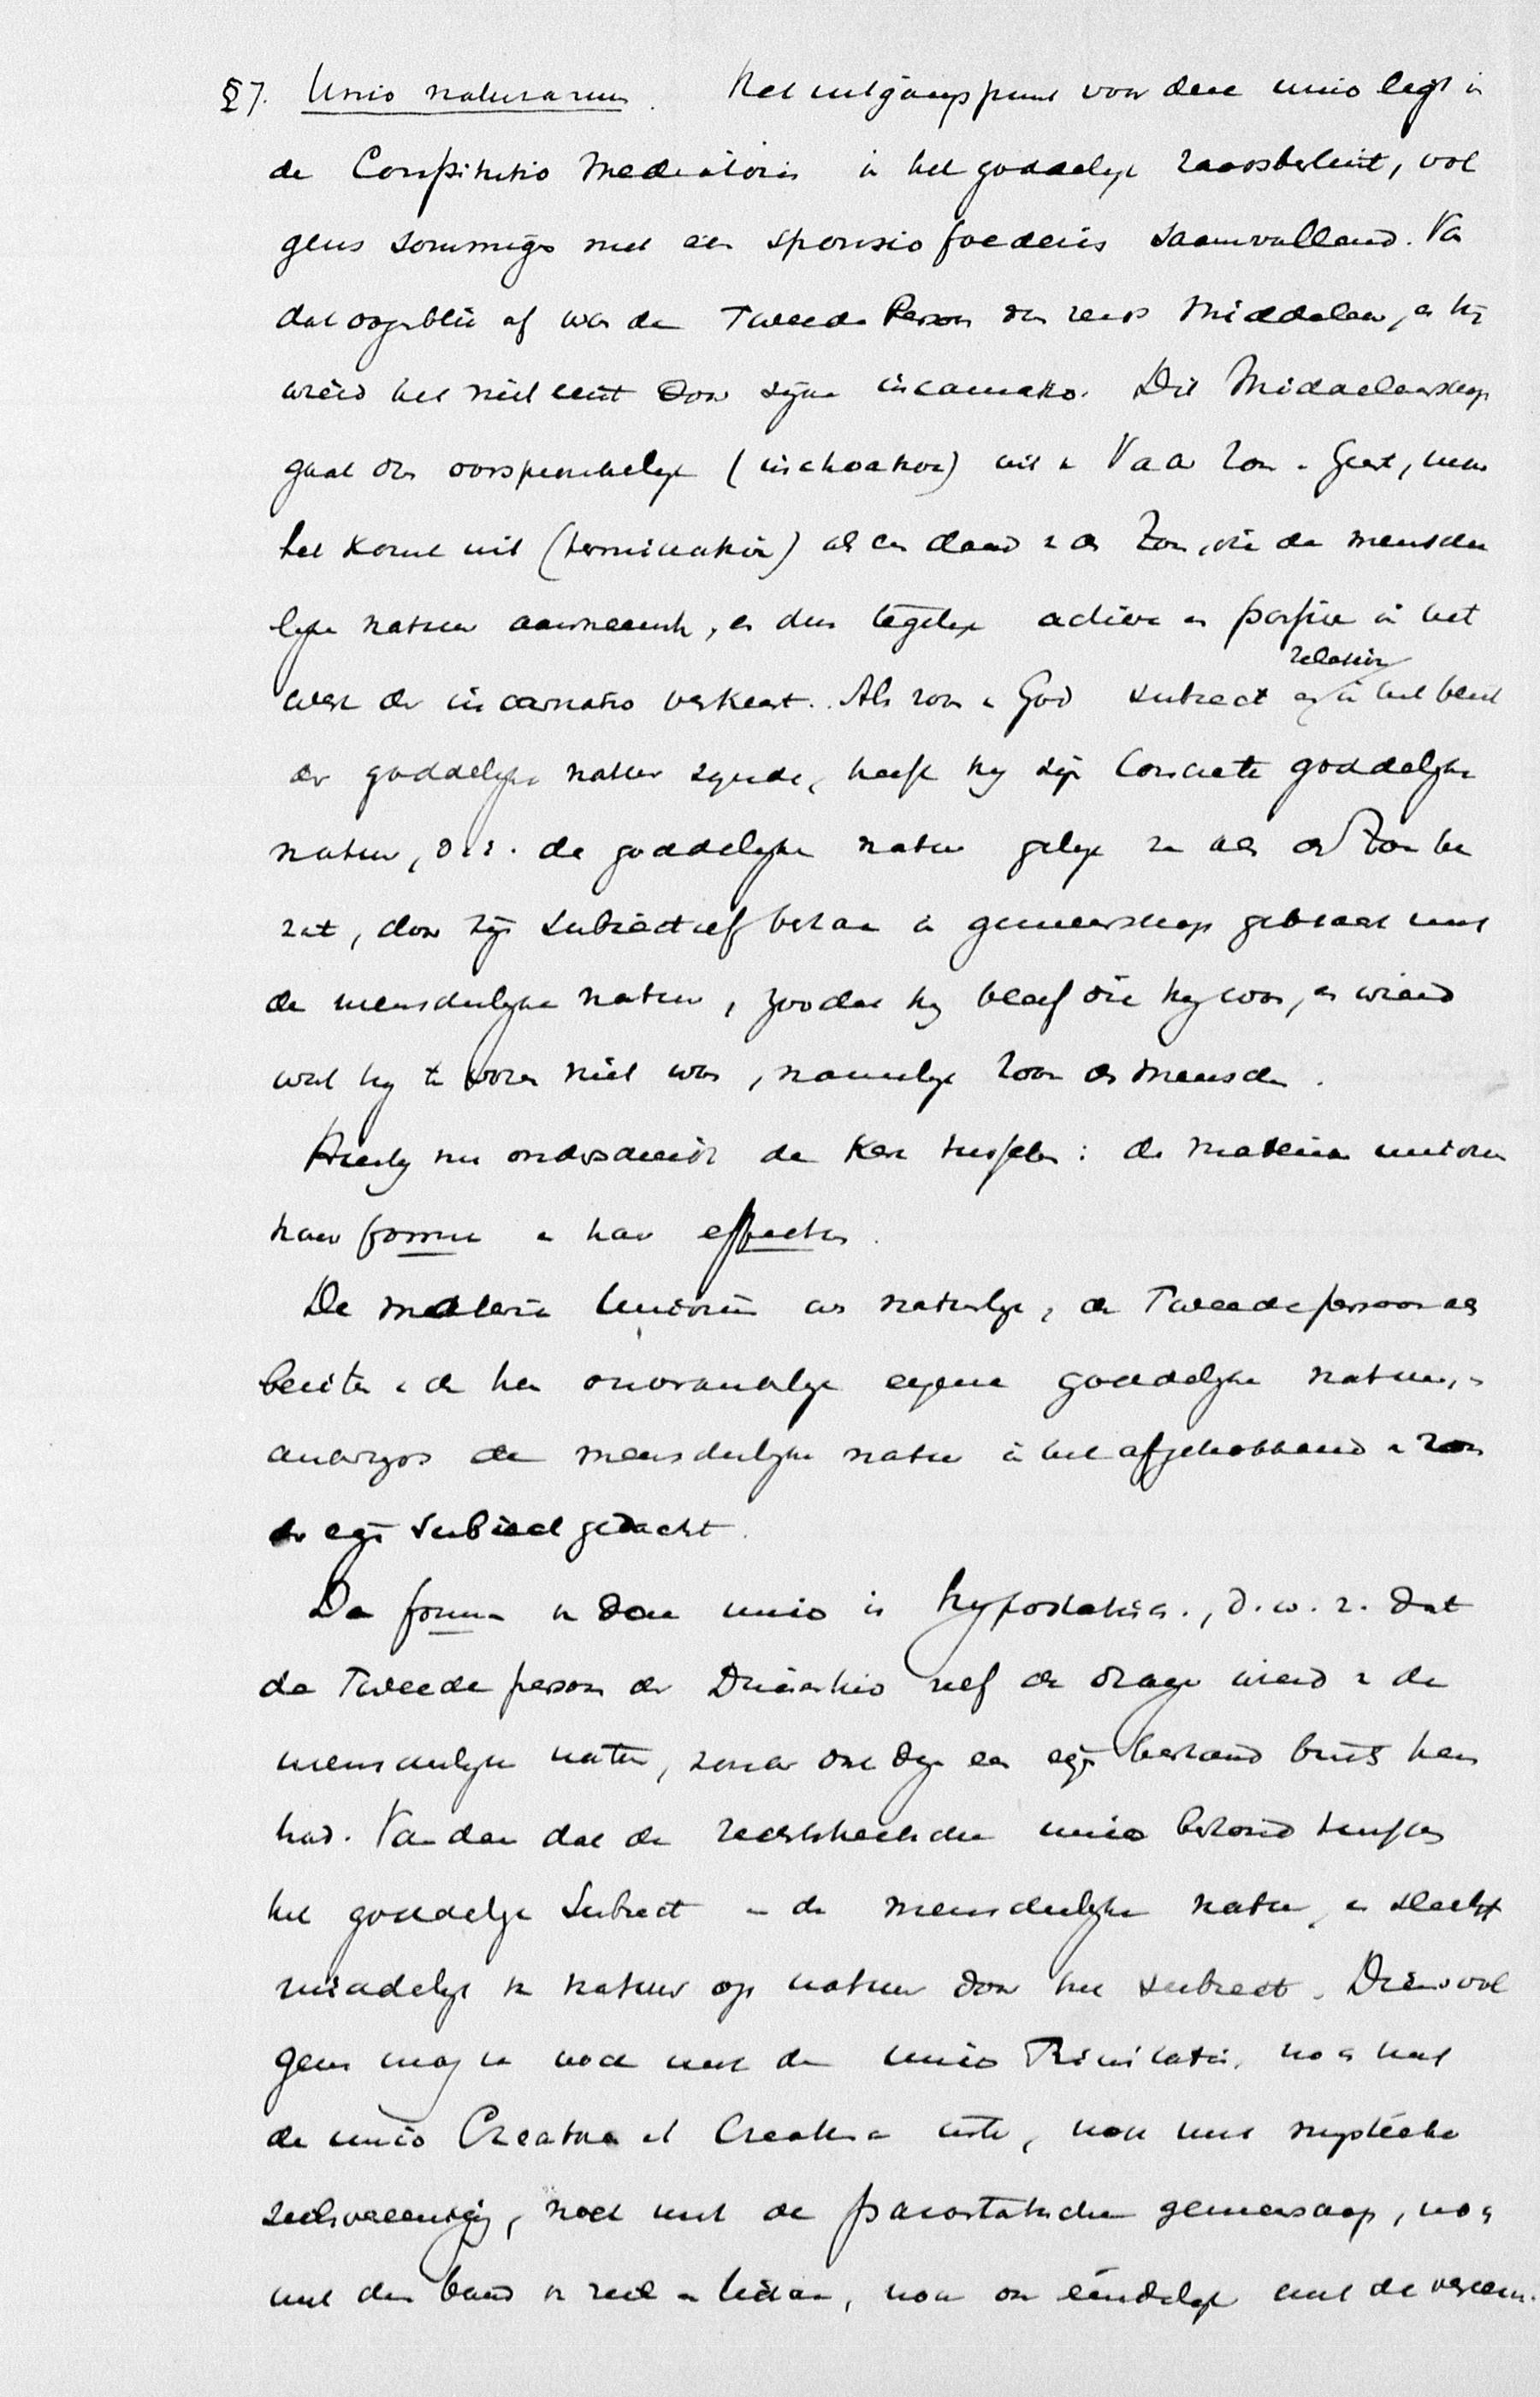 §7. Unio naturarum. Het uitgangspunt voor deze unio ligt in
de Constitutio Mediatoris in het goddelijk raadsbesluit, vol
gens sommigen met een sponsio foederis saamvallend. Van
dat oogenblik af was de Tweede Persoon dus reeds Middelaar, en hij
wierd het niet eerst door zijne incarnatio. Dit Middelaarschap
gaat dus oorspronkelijk (inchoative) uit v Vader Zoon en Geest, maar
het komt uit (terminative) als een daad v den Zoon, die de mensche
lijke natuur aanneemt, en dus tegelijk active en passive in het
werk der incarnatio verkeert. Als zoon v God subject en relative in het bezit
der goddelijke natuur zijnde, heeft hij zijn concrete goddelijke
natuur, d.i. de goddelijke natuur gelijk ze als de Zoon be
zat, door zijn subjectief bestaan in gemeenschap gebracht met
de menschelijke natuur, zoodat hij bleef die hij was, en wierd
wat hij te voren niet was, namelijk Zoon des menschen.
Hierbij nu onderscheidt de Kerk tusschen: de materia unionis
haar forma en haar effectus.
De materia unionis is natuurlijk, de Tweede persoon als
bezitter v de hem onvervreemdbare eigene goddelijke natuur, en
anderzijds de menschelijke natuur in het afgetrokkene en zon
der eigen subject gedacht.
De forma v deze unio is hypostatica, d.w.z. dat
de Tweede persoon der Drieëenheid zelf de drager wierd v de
menschelijke natuur, zonder dat deze een eigen bestand buiten hem
had. Vandaar dat de rechtstreeksche unio bestond tusschen
het goddelijk Subject en de menschelijke natuur, en slechts
middelijk v natuur op natuur door het subject. Dienvol
gens mag ze noch met de unio Trinitatis, noch met
de unio Creatoris et Creaturae, noch met mystieke
zielsvereeniging, noch met de parastatische gemeenschap, noch
met den band v ziel en lichaam, noch ook eindelijk met de vereen.